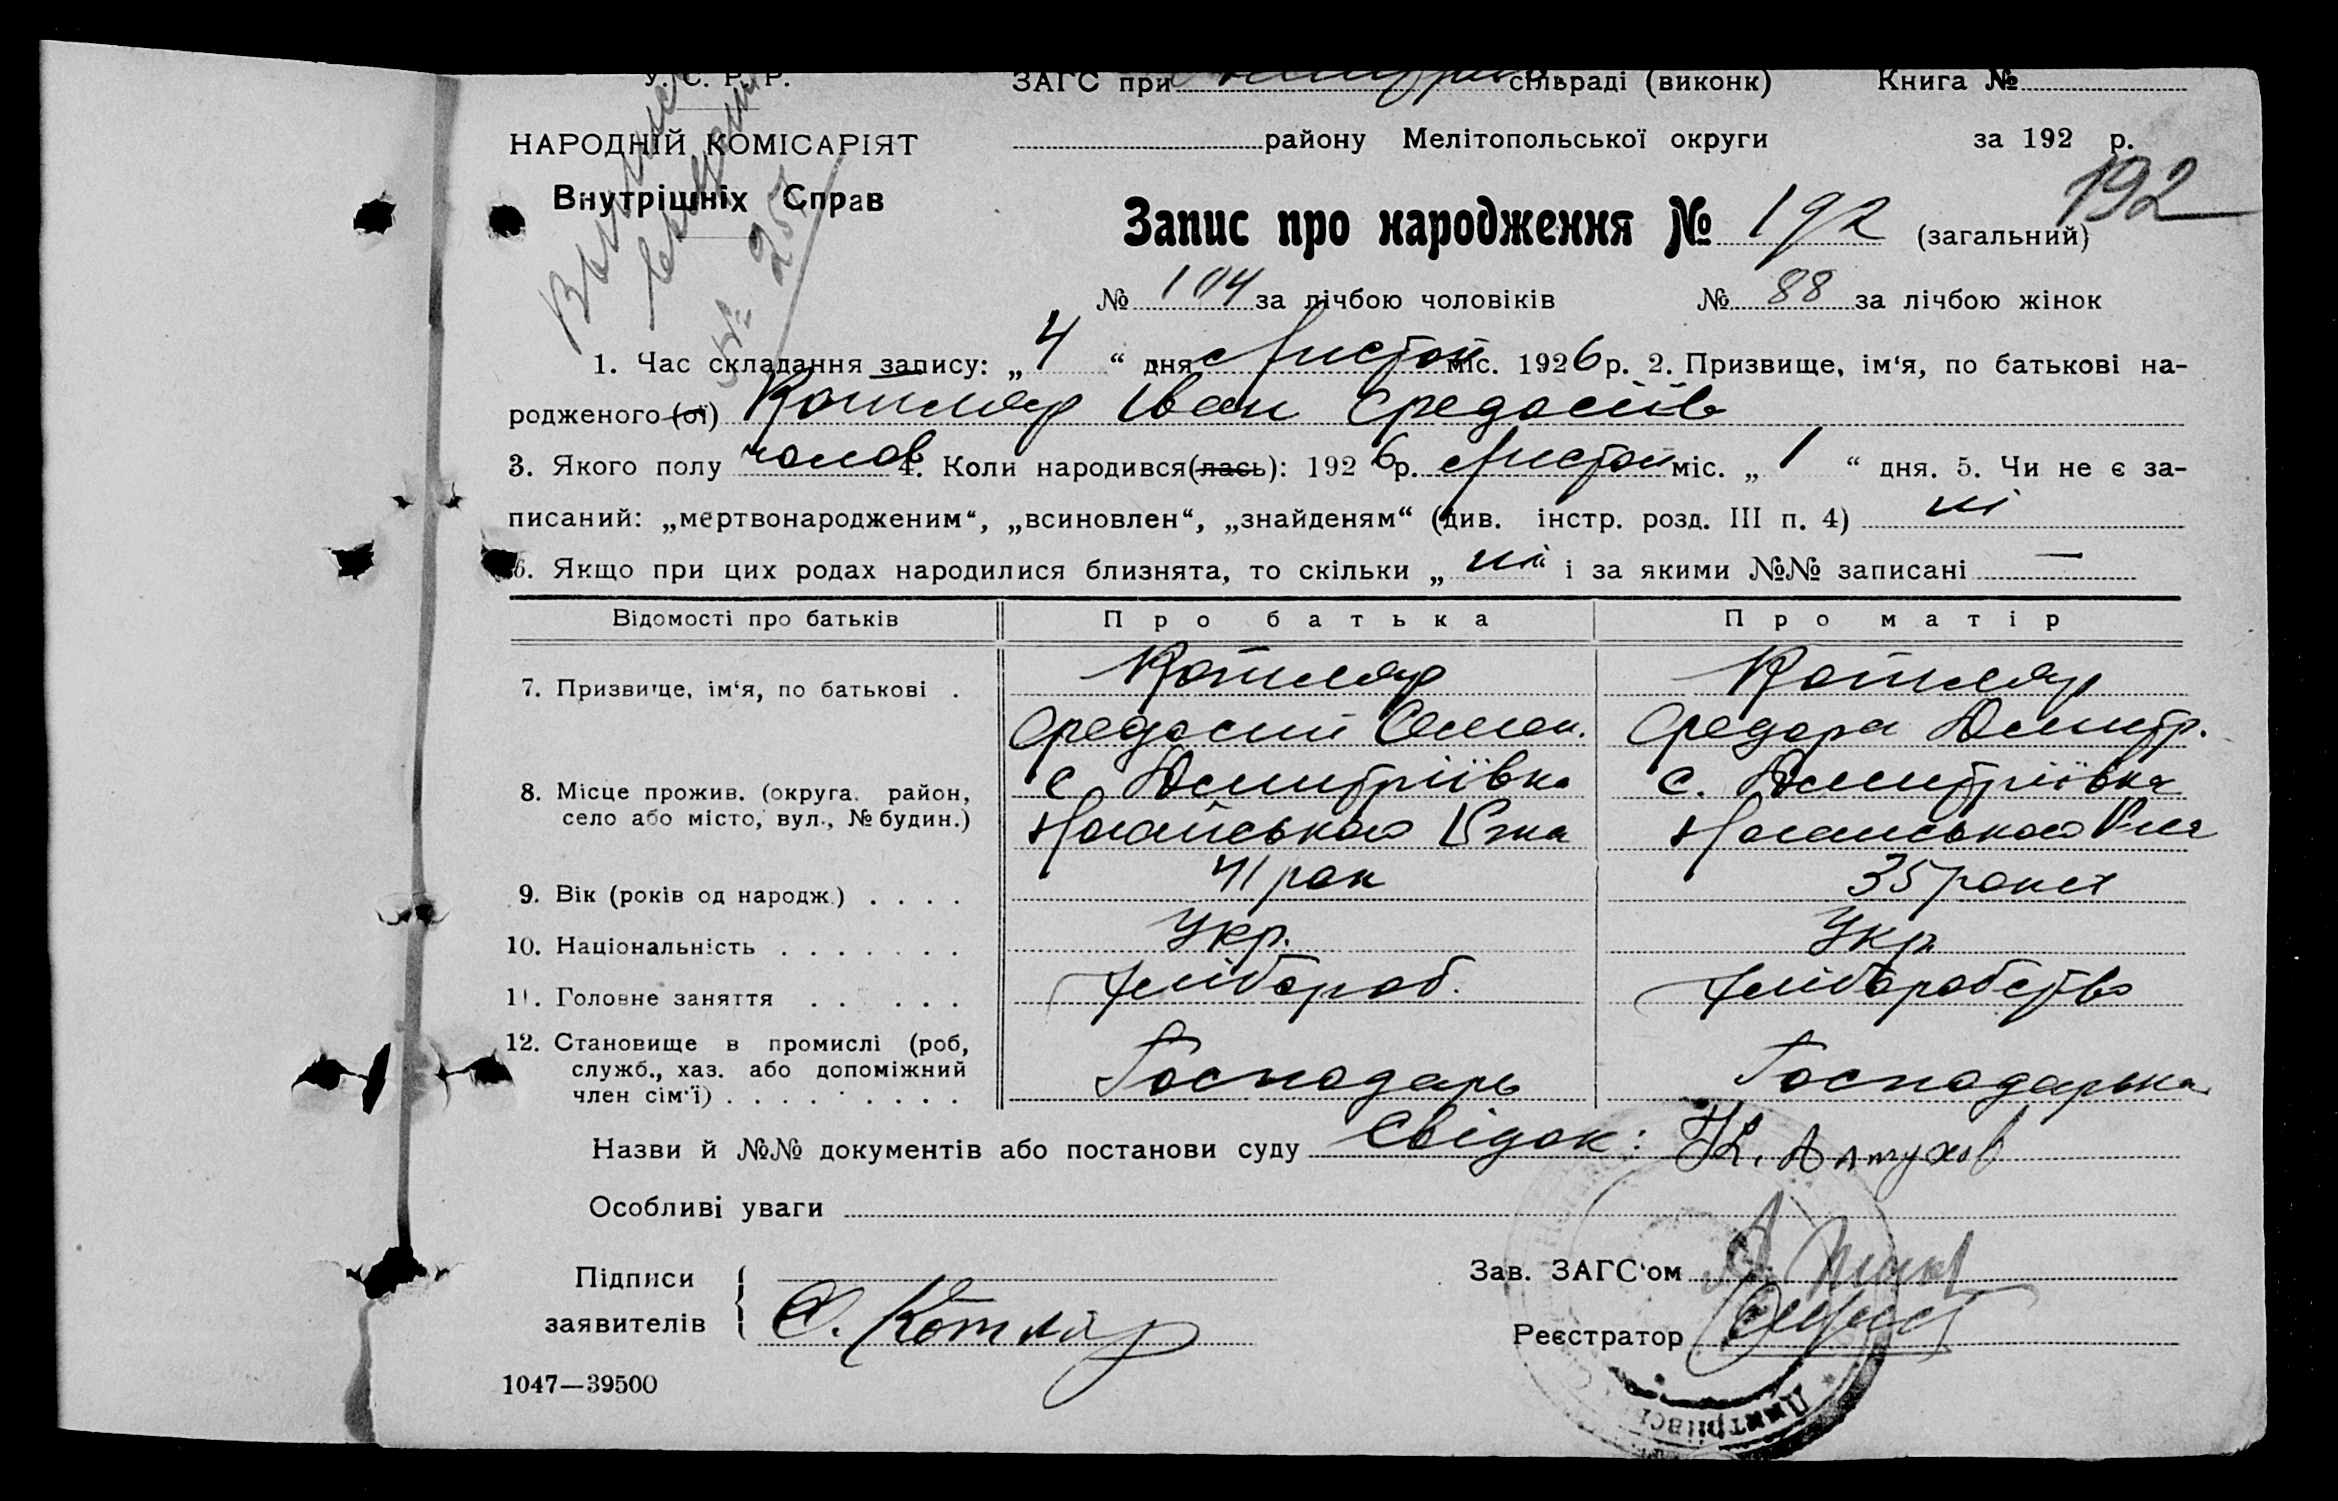 У. С. Р. Р. ЗАГС при сільраді (виконк) Книга №
НАРОДНІЙ КОМІСАРІЯТ району Мелітопольської округи за 192 р.
Внутрішніх Справ
192
Запис про народження № 192 (загальний)
№ 257
№ 104 за лічбою чоловіків № 88 за лічбою жінок
1. Час складання запису: „ 4 “ дня Листоп міс. 1926 р. 2. Призвище, ім‘я, по батькові на-
родженого (ої) Котляр Іван Федосіїв
3. Якого полу чолов 4. Коли народився(лась): 1926 р. Листоп міс. „ 1 “ дня. 5. Чи не є за-
писаний: „мертвонародженим“, „всиновлен“, „знайденям“ (див. інстр. розд. III п. 4) ні
6. Якщо при цих родах народилися близнята, то скільки „ ні “ і за якими №№ записані —
Відомості про батьків Про батька Про матір
7. Призвище, ім‘я, по батькові . Котляр Котляр
Федосий Семен. Федора Дмитр.
8. Місце прожив. (округа, район, с Дмитріївка с. Дмитріївка
село або місто, вул., № будин.) Ногайського Р-на Ногайського Р-на
9. Вік (років од народж.) . . . . 41 рок 35 років
10. Національність . . . . . . . Укр. Укр.
11. Головне заняття . . . . . . Хлібороб. Хліборобство
12. Становище в промислі (роб,
служб., хаз. або допоміжний Господарь Господарька
член сім‘ї) . . . . . . . . . .
Назви й №№ документів або постанови суду Свідок: К. Алтухов
Особливі уваги
Підписи Зав. ЗАГС‘ом
заявителів Ф. Котляр Реєстратор
1047—39500